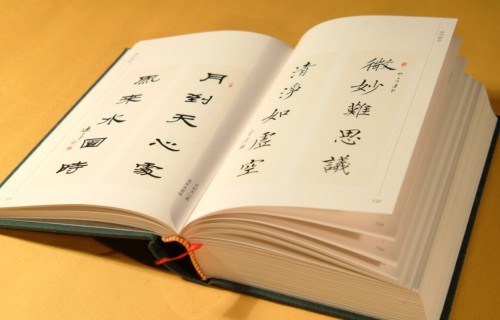 微妙難思議
清淨如虛空
月到天心處
風来水面時